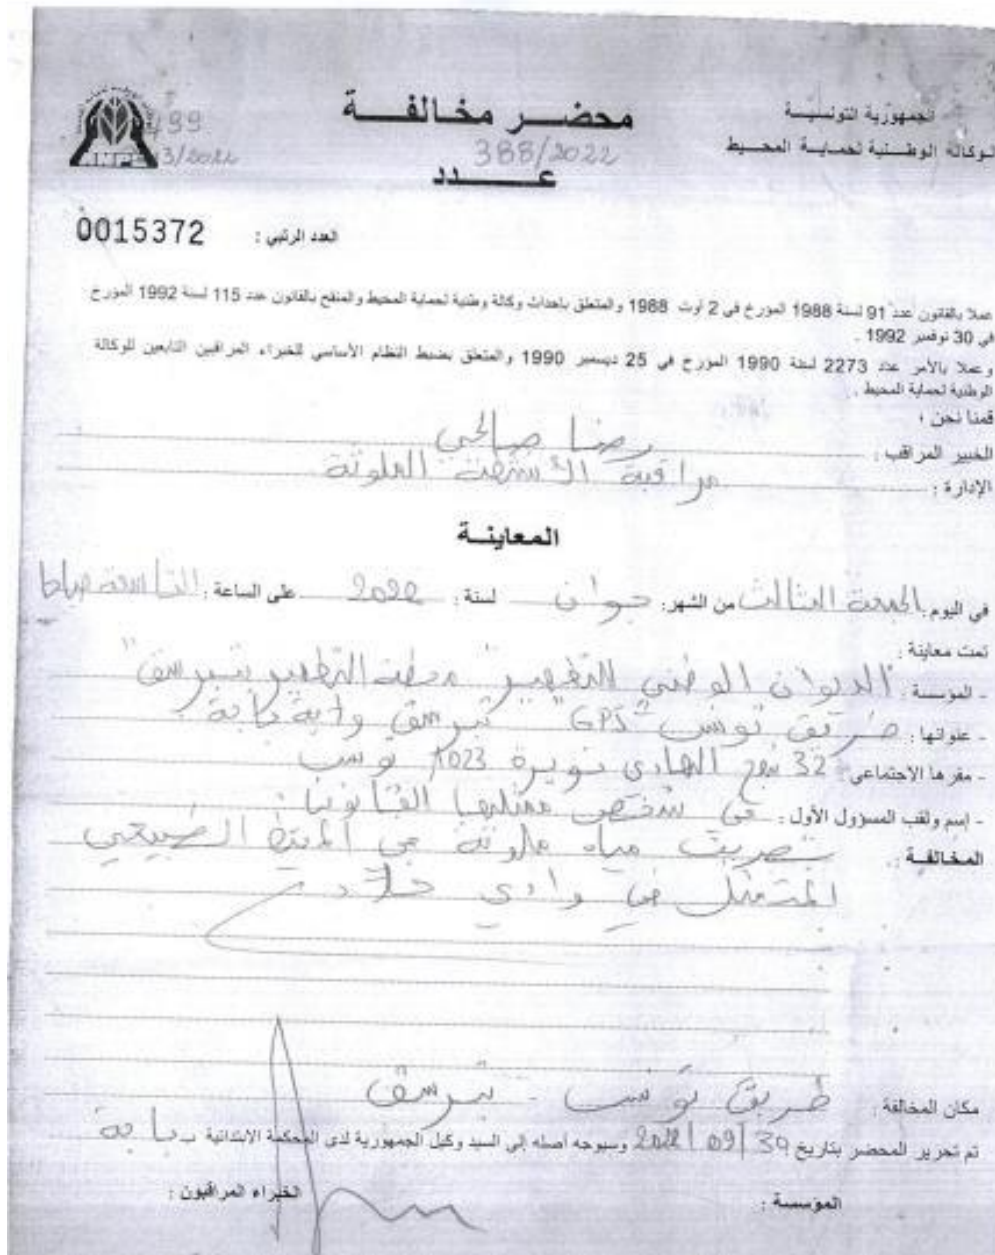 الجمهورية التونسية
الوكالة الوطنية لحماية المحيط
محضر مخالفة
388/2022
عدد
ANPE
499
3/2022
العدد الرتبي : 0015372
عملا بالقانون عدد 91 لسنة 1988 المؤرخ في 2 أوت 1988 والمتعلق بإحداث وكالة وطنية لحماية المحيط والمنقح بالقانون عدد 115 لسنة 1992 المؤرخ
في 30 نوفمبر 1992 .
وعملا بالأمر عدد 2273 لسنة 1990 المؤرخ في 25 ديسمبر 1990 والمتعلق بضبط النظام الأساسي للخبراء المراقبين التابعين للوكالة
الوطنية لحماية المحيط .
قمنا نحن ،
الخبير المراقب : رضا صالحي
الإدارة : مراقبة الأنشطة الملوثة
المعاينة
في اليوم : الجمعة الثالث من الشهر : جوان لسنة : 2022 على الساعة : التاسعة صباحا
تمت معاينة :
- المؤسسة : الديوان الوطني للتطهير "محطة التطهير تبرسق"
- عنوانها : طريق تونس "GP5" تبرسق ولاية باجة
- مقرها الاجتماعي : 32 نهج الهادي نويرة 1023 تونس
- إسم ولقب المسؤول الأول : في شخص ممثلها القانوني
المخالفة : تصريف مياه ملوثة في المحيط الطبيعي
المتمثل في وادي خلاد
مكان المخالفة : طريق تونس - تبرسق
تم تحرير المحضر بتاريخ 2022/09/ وسيوجه أصله إلى السيد وكيل الجمهورية لدى المحكمة الابتدائية ب باجة
المؤسسة :
الخبراء المراقبون :